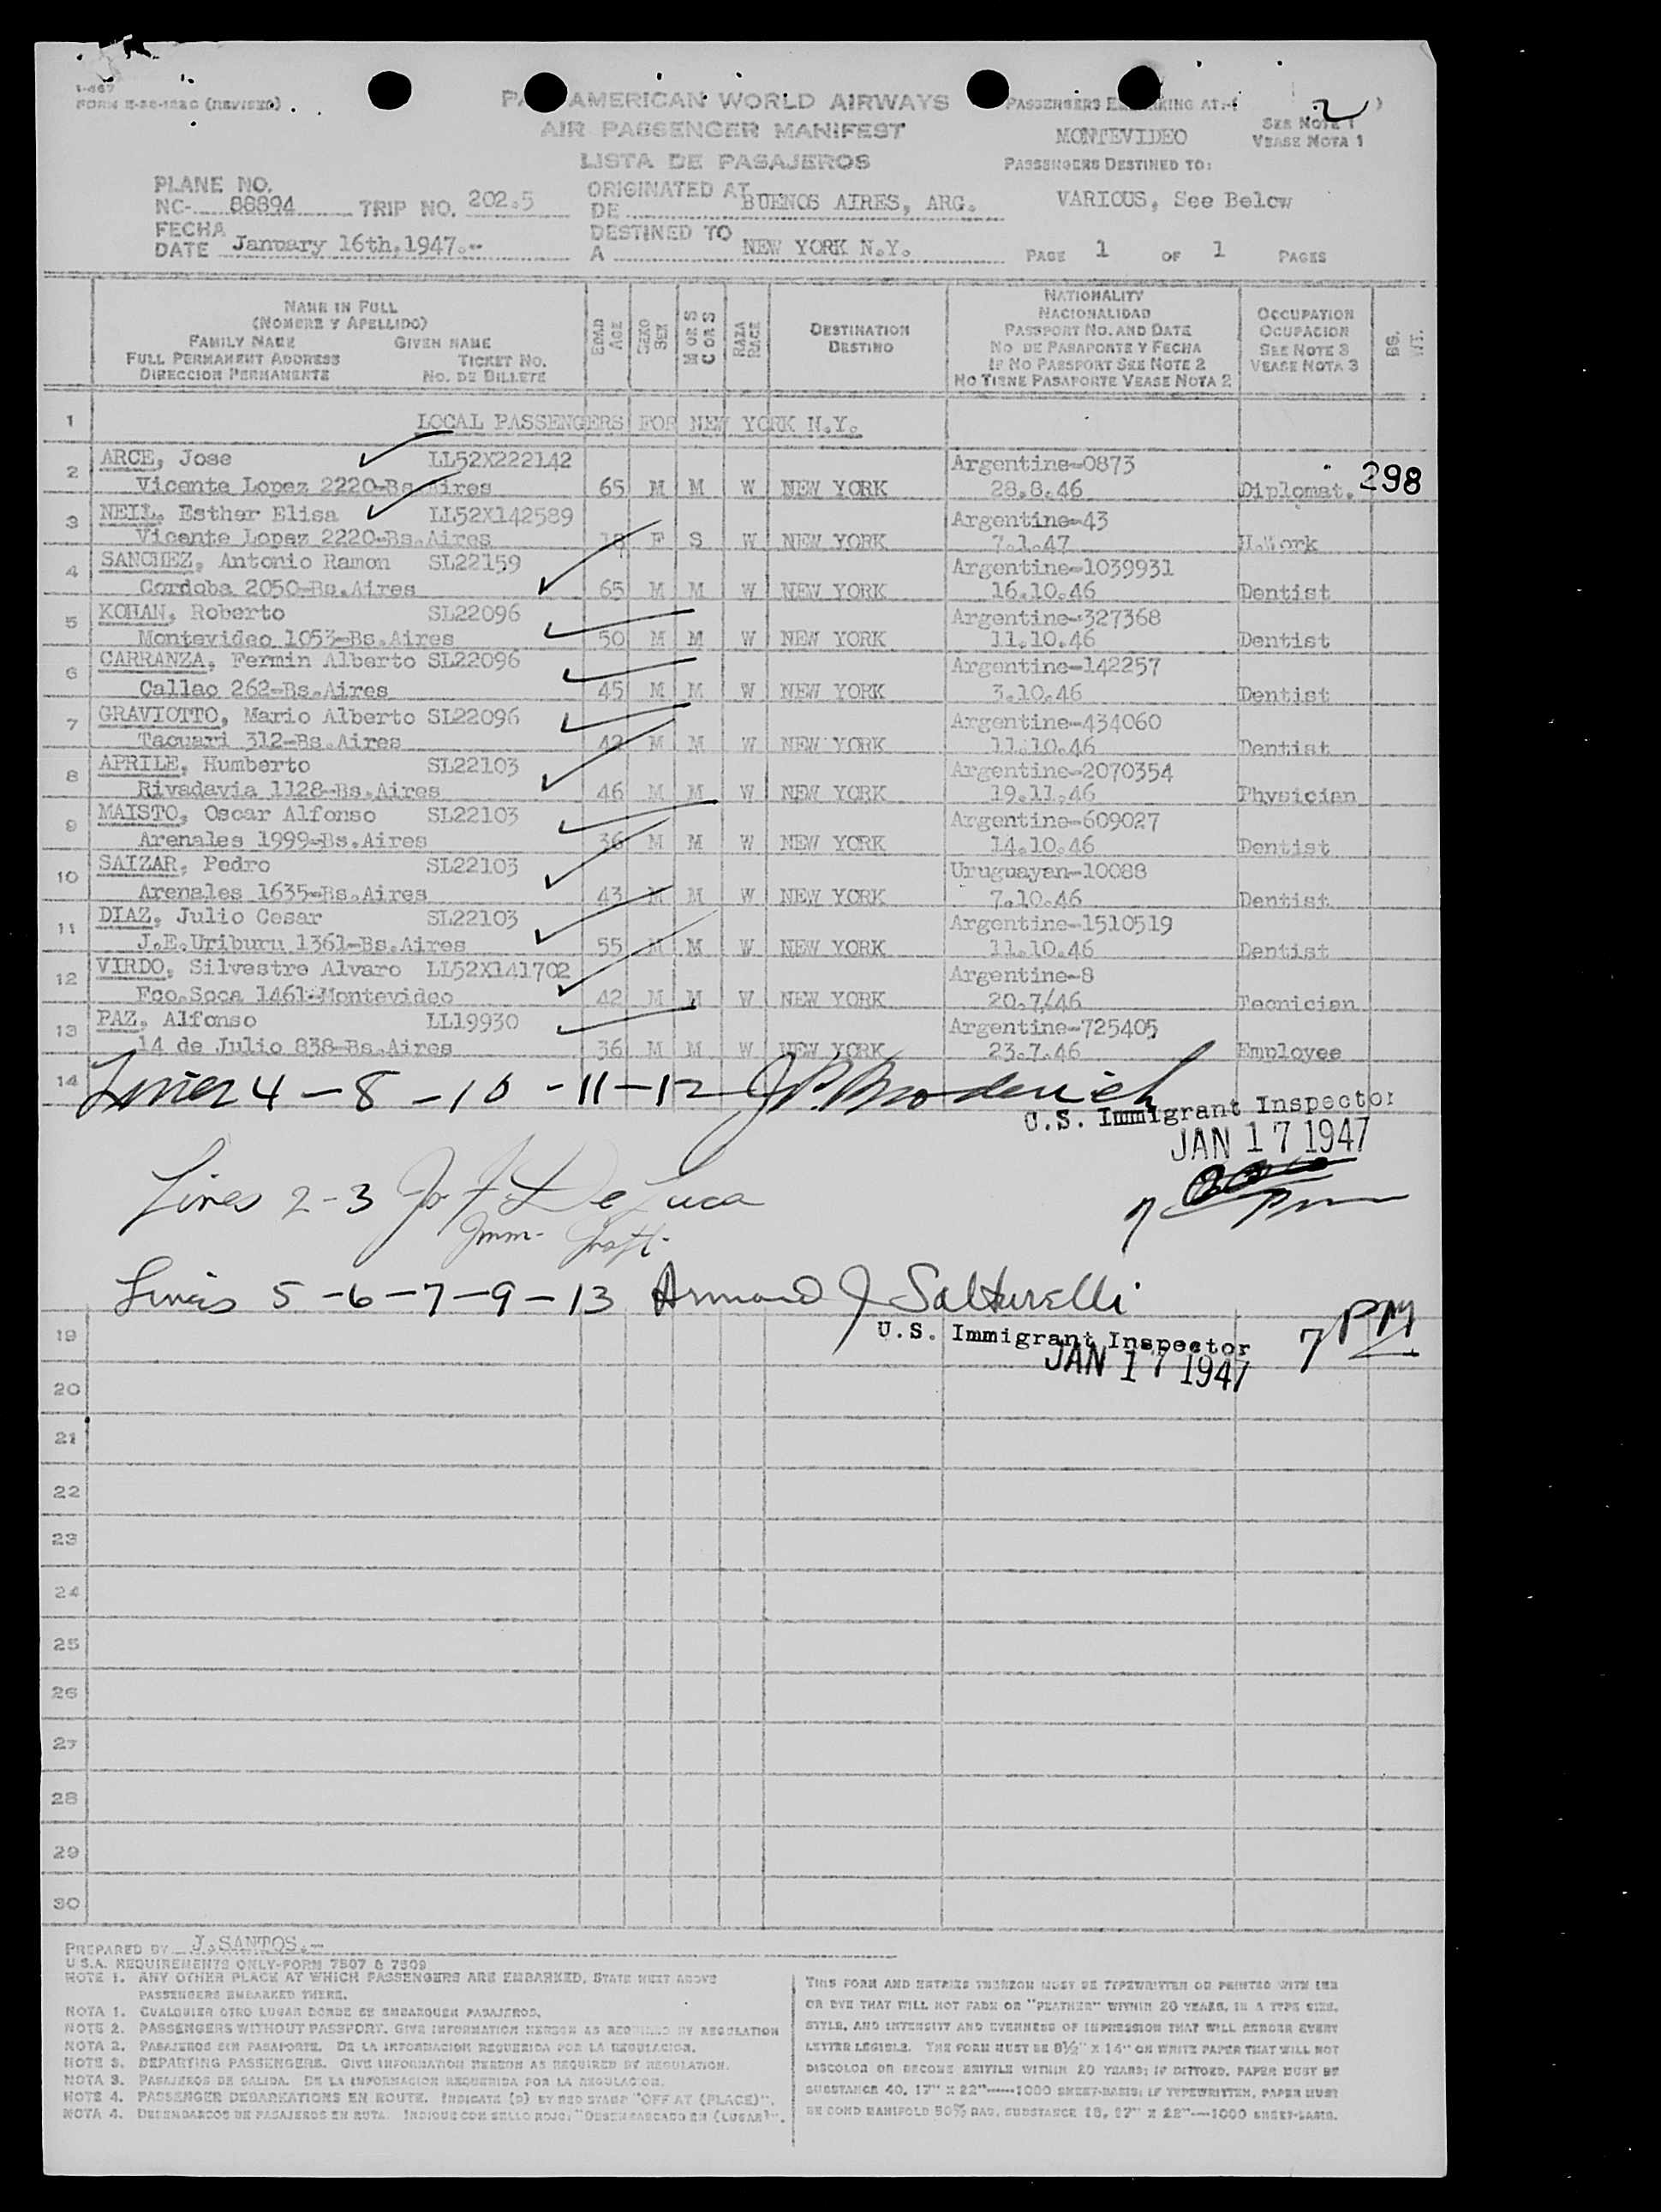 I-467
FORM E-36-122C (REVISED)
PAN AMERICAN WORLD AIRWAYS
AIR PASSENGER MANIFEST
LISTA DE PASAJEROS
PASSENGERS EMBARKING AT:-( 2 )
SEE NOTE 1
VEASE NOTA 1
MONTEVIDEO
PASSENGERS DESTINED TO:
VARIOUS, See Below
PLANE NO.
NC- 88894 TRIP NO. 202.5
FECHA
DATE January 16th.1947.-
ORIGINATED AT
DE BUENOS AIRES, ARG.
DESTINED TO
A NEW YORK N.Y.
PAGE 1 OF 1 PAGES
NAME IN FULL
(NOMBRE Y APELLIDO)
FAMILY NAME GIVEN NAME
FULL PERMANENT ADDRESS TICKET NO.
DIRECCION PERMANENTE NO. DE BILLETE
EDAD AGE
SEXO SEX
M OR S C O R S
RAZA RACE
DESTINATION
DESTINO
NATIONALITY
NACIONALIDAD
PASSPORT NO. AND DATE
NO DE PASAPORTE Y FECHA
IF NO PASSPORT SEE NOTE 2
NO TIENE PASAPORTE VEASE NOTA 2
OCCUPATION
OCUPACION
SEE NOTE 3
VEASE NOTA 3
BG. WT.
1 LOCAL PASSENGERS FOR NEW YORK N.Y.
2 ARCE, Jose LL52X222142 Argentine-0873
Vicente Lopez 2220-Bs.Aires 65 M M W NEW YORK 28.8.46 Diplomat. 298
3 NEIL, Esther Elisa LL52X142589 Argentine-43
Vicente Lopez 2220-Bs.Aires 18 F S W NEW YORK 7.1.47 H.Work
4 SANCHEZ, Antonio Ramon SL22159 Argentine-1039931
Cordoba 2050-Bs.Aires 65 M M W NEW YORK 16.10.46 Dentist
5 KOHAN, Roberto SL22096 Argentine-327368
Montevideo 1053-Bs.Aires 50 M M W NEW YORK 11.10.46 Dentist
6 CARRANZA, Fermin Alberto SL22096 Argentine-142257
Callao 262-Bs.Aires 45 M M W NEW YORK 3.10.46 Dentist
7 GRAVIOTTO, Mario Alberto SL22096 Argentine-434060
Tacuari 312-Bs.Aires 42 M M W NEW YORK 11.10.46 Dentist
8 APRILE, Humberto SL22103 Argentine-2070354
Rivadavia 1128-Bs.Aires 46 M M W NEW YORK 19.11.46 Physician
9 MAISTO, Oscar Alfonso SL22103 Argentine-609027
Arenales 1999-Bs.Aires 36 M M W NEW YORK 14.10.46 Dentist
10 SAIZAR, Pedro SL22103 Uruguayan-10088
Arenales 1635-Bs.Aires 43 M M W NEW YORK 7.10.46 Dentist
11 DIAZ, Julio Cesar SL22103 Argentine-1510519
J.E.Uriburu 1361-Bs.Aires 55 M M W NEW YORK 11.10.46 Dentist
12 VIRDO, Silvestre Alvaro LL52X141702 Argentine-8
Fco.Soca 1461-Montevideo 42 M M W NEW YORK 20.7/46 Tecnician
13 PAZ, Alfonso LL19930 Argentine-725405
14 de Julio 838-Bs.Aires 36 M M W NEW YORK 23.7.46 Employee
14 Lines 4 - 8 - 10 - 11 - 12 J.P. Broderick
U.S. Immigrant Inspector
JAN 17 1947
Lines 2-3 Jos. F. De Luca
Imm. Insp.
7 pm
Lines 5 - 6 - 7 - 9 - 13 Armand J Salturelli
U.S. Immigrant Inspector
JAN 17 1947
7 PM
19
20
21
22
23
24
25
26
27
28
29
30
PREPARED BY J.SANTOS.-
U.S.A. REQUIREMENTS ONLY-FORM 7507 & 7509
NOTE 1. ANY OTHER PLACE AT WHICH PASSENGERS ARE EMBARKED, STATE NEXT ABOVE
PASSENGERS EMBARKED THERE.
NOTA 1. CUALQUIER OTRO LUGAR DONDE SE EMBARQUEN PASAJEROS.
NOTE 2. PASSENGERS WITHOUT PASSPORT. GIVE INFORMATION HEREON AS REQUIRED BY REGULATION
NOTA 2. PASAJEROS SIN PASAPORTE. DE LA INFORMACION REQUERIDA POR LA REGULACION.
NOTE 3. DEPARTING PASSENGERS. GIVE INFORMATION HEREON AS REQUIRED BY REGULATION.
NOTA 3. PASAJEROS DE SALIDA. DE LA INFORMACION REQUERIDA POR LA REGULACION.
NOTE 4. PASSENGER DEBARKATIONS EN ROUTE. INDICATE (D) BY RED STAMP "OFF AT (PLACE)".
NOTA 4. DESEMBARCOS DE PASAJEROS EN RUTA. INDIQUE CON SELLO ROJO: "DESEMBARCADO EN (LUGAR)".
THIS FORM AND ENTRIES THEREON MUST BE TYPEWRITTEN OR PRINTED WITH INK
OR DYE THAT WILL NOT FADE OR "FEATHER" WITHIN 20 YEARS, IN A TYPE SIZE,
STYLE, AND INTENSITY AND EVENNESS OF IMPRESSION THAT WILL RENDER EVERY
LETTER LEGIBLE. THE FORM MUST BE 8½" X 14" ON WHITE PAPER THAT WILL NOT
DISCOLOR OR BECOME BRITTLE WITHIN 20 YEARS; IF DITTOED, PAPER MUST BE
SUBSTANCE 40, 17" X 22"-----1000 SHEET-BASIS; IF TYPEWRITTEN, PAPER MUST
BE BOND MANIFOLD 50% RAG, SUBSTANCE 18, 17" X 22"----1000 SHEET-BASIS.